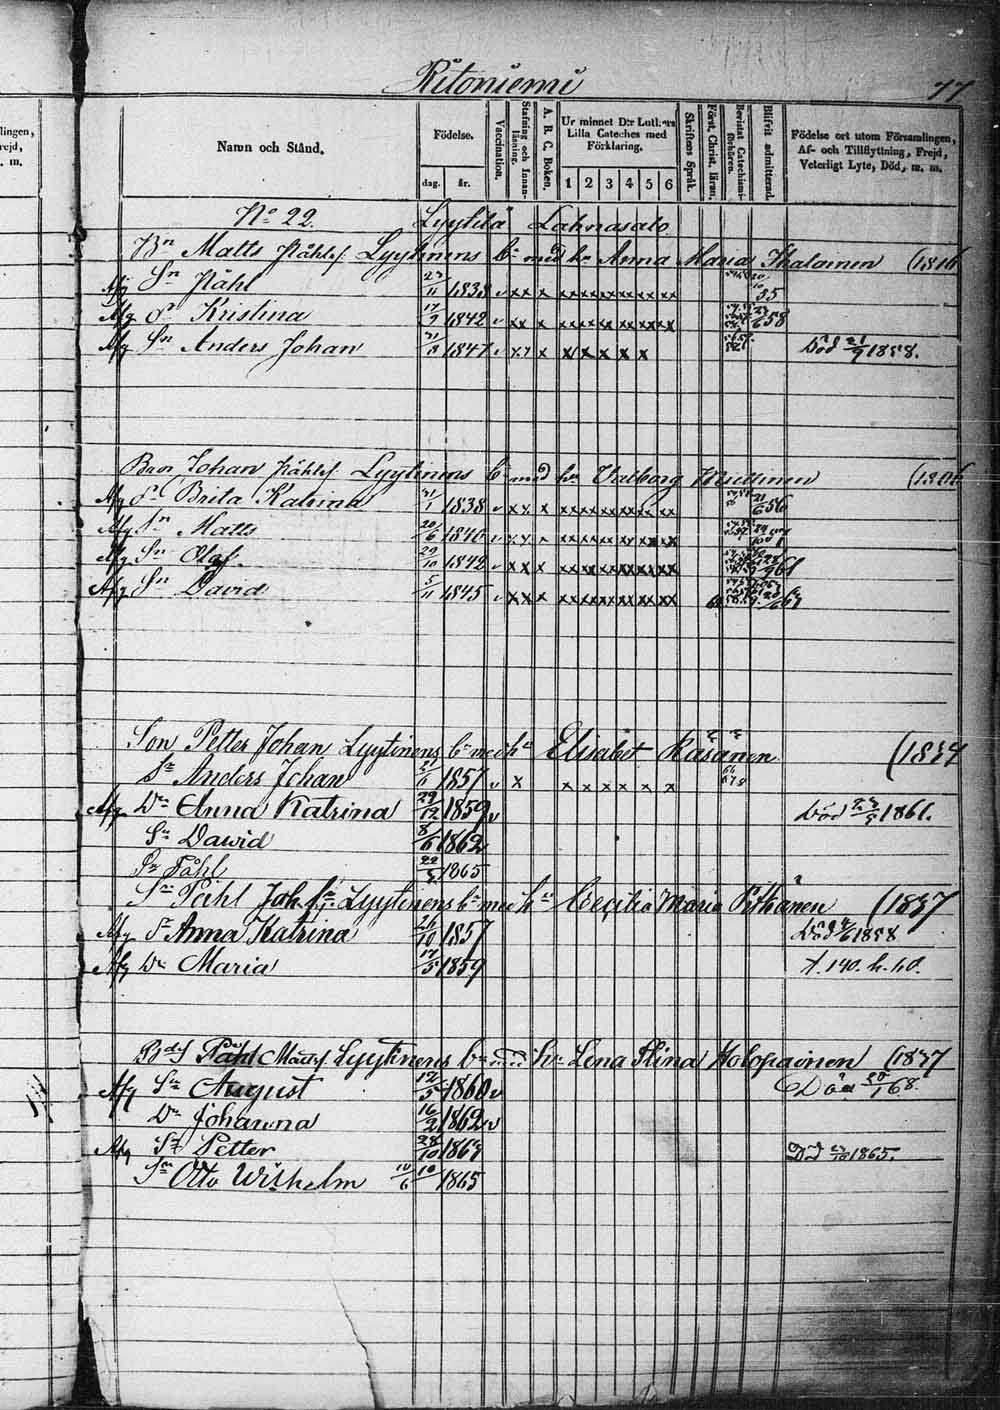 Ritoniemi 77
lingen,
rejd,
. m.
Namn och Stånd.
Födelse.
dag. år.
Vaccination.
Stafning och Innanläsning.
A. B. C. Boken.
Ur minnet D:r Luthers
Lilla Cateches med
Förklaring.
1 2 3 4 5 6
Skriftens Språk.
Först. Christ. läran.
Bevistat Catechismiförhören.
Blifvit admitterad.
Födelse ort utom Församlingen,
Af- och Tillflyttning, Frejd,
Veterligt Lyte, Död, m. m.
No 22. Lyytilä Lahnasalo
Bn Matts Påhlsf. Lyytinens bn med hu Anna Maria Ihalainen (1816
Afg Sn Påhl 23/11 1838 v xx x xx xx xx xx xx xx 35
Afg dr Kristina 17/9 1842 v xx x xx xx xx xx xx xx 658
Afg Sn Anders Johan 31/8 1847 v xx x x x x x x Död 21/9 1858.
Bror Johan Påhlsf. Lyytinens bn med hu Valborg Miettinen (1806
Afg dr Brita Katrina 31/1 1838 v xx x xx xx xx xx xx xx 21/656
Afg Sn Matts 20/6 1840 v xx x xx xx xx xx xx xx
Afg Sn Olof. 29/10 1842 v xx x xx xx xx xx xx xx 61
Afg Sn David 5/11 1845 v xx x xx xx xx xx xx xx
Son Petter Johan Lyytinens bn med hu Elisabet Räsänen (1834
Sn Anders Johan 1857 v x x x x x x x
Afg Dr Anna Katrina 29/12 1859 v Död 1861.
Sn Dawid 8/6 1862
Sn Påhl 22/5 1865
Sn Påhl Joh.sn Lyytinens bn med hu Cecilia Maria Pitkänen (1837
Afg Dr Anna Katrina 26/10 1857 Död 1858
Afg Dr Maria 17/5 1859 t. 140. h. bd.
Pål Mattsf Lyytinens bn med hu Lena Stina Kolopainen (1837
Afg Sn August 12/5 1860 v Död 20/1 68.
Dr Johanna 16/2 1862 v
Afg Sn Petter 28/10 1863 Död 23/10 1865.
Sn Otto Wilhelm 10/6 10 1865